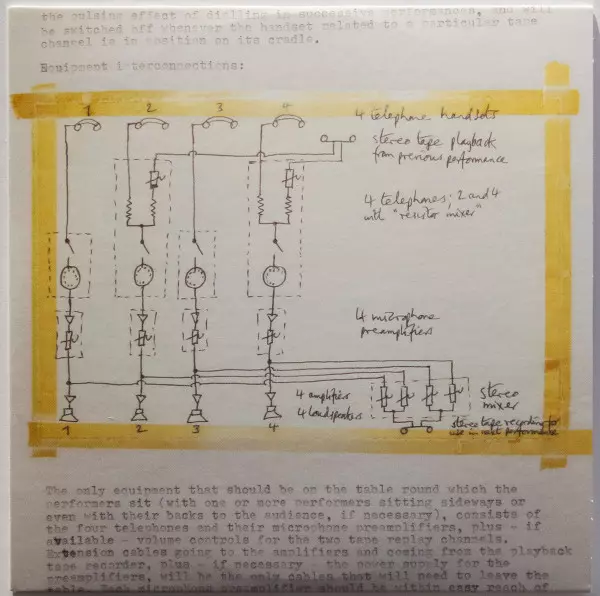 the pulsing effect of dialling in successive performances, and will
be switched off whenever the handset related to a particular tape
channel is in position on its cradle.
Equipment interconnections:
1 2 3 4
4 telephone handsets
stereo tape playback
from previous performance
4 telephones; 2 and 4
with "resistor mixer"
4 microphone
preamplifiers
4 amplifiers
4 loudspeakers
stereo
mixer
1 2 3 4
stereo tape recording for
use in next performance
The only equipment that should be on the table round which the
performers sit (with one or more performers sitting sideways or
even with their backs to the audience, if necessary), consists of
the four telephones and their microphone preamplifiers, plus - if
available - volume controls for the two tape replay channels.
Extension cables going to the amplifiers and coming from the playback
tape recorder, plus - if necessary - the power supply for the
preamplifiers, will be the only cables that will need to leave the
table. Each microphone preamplifier should be within easy reach of